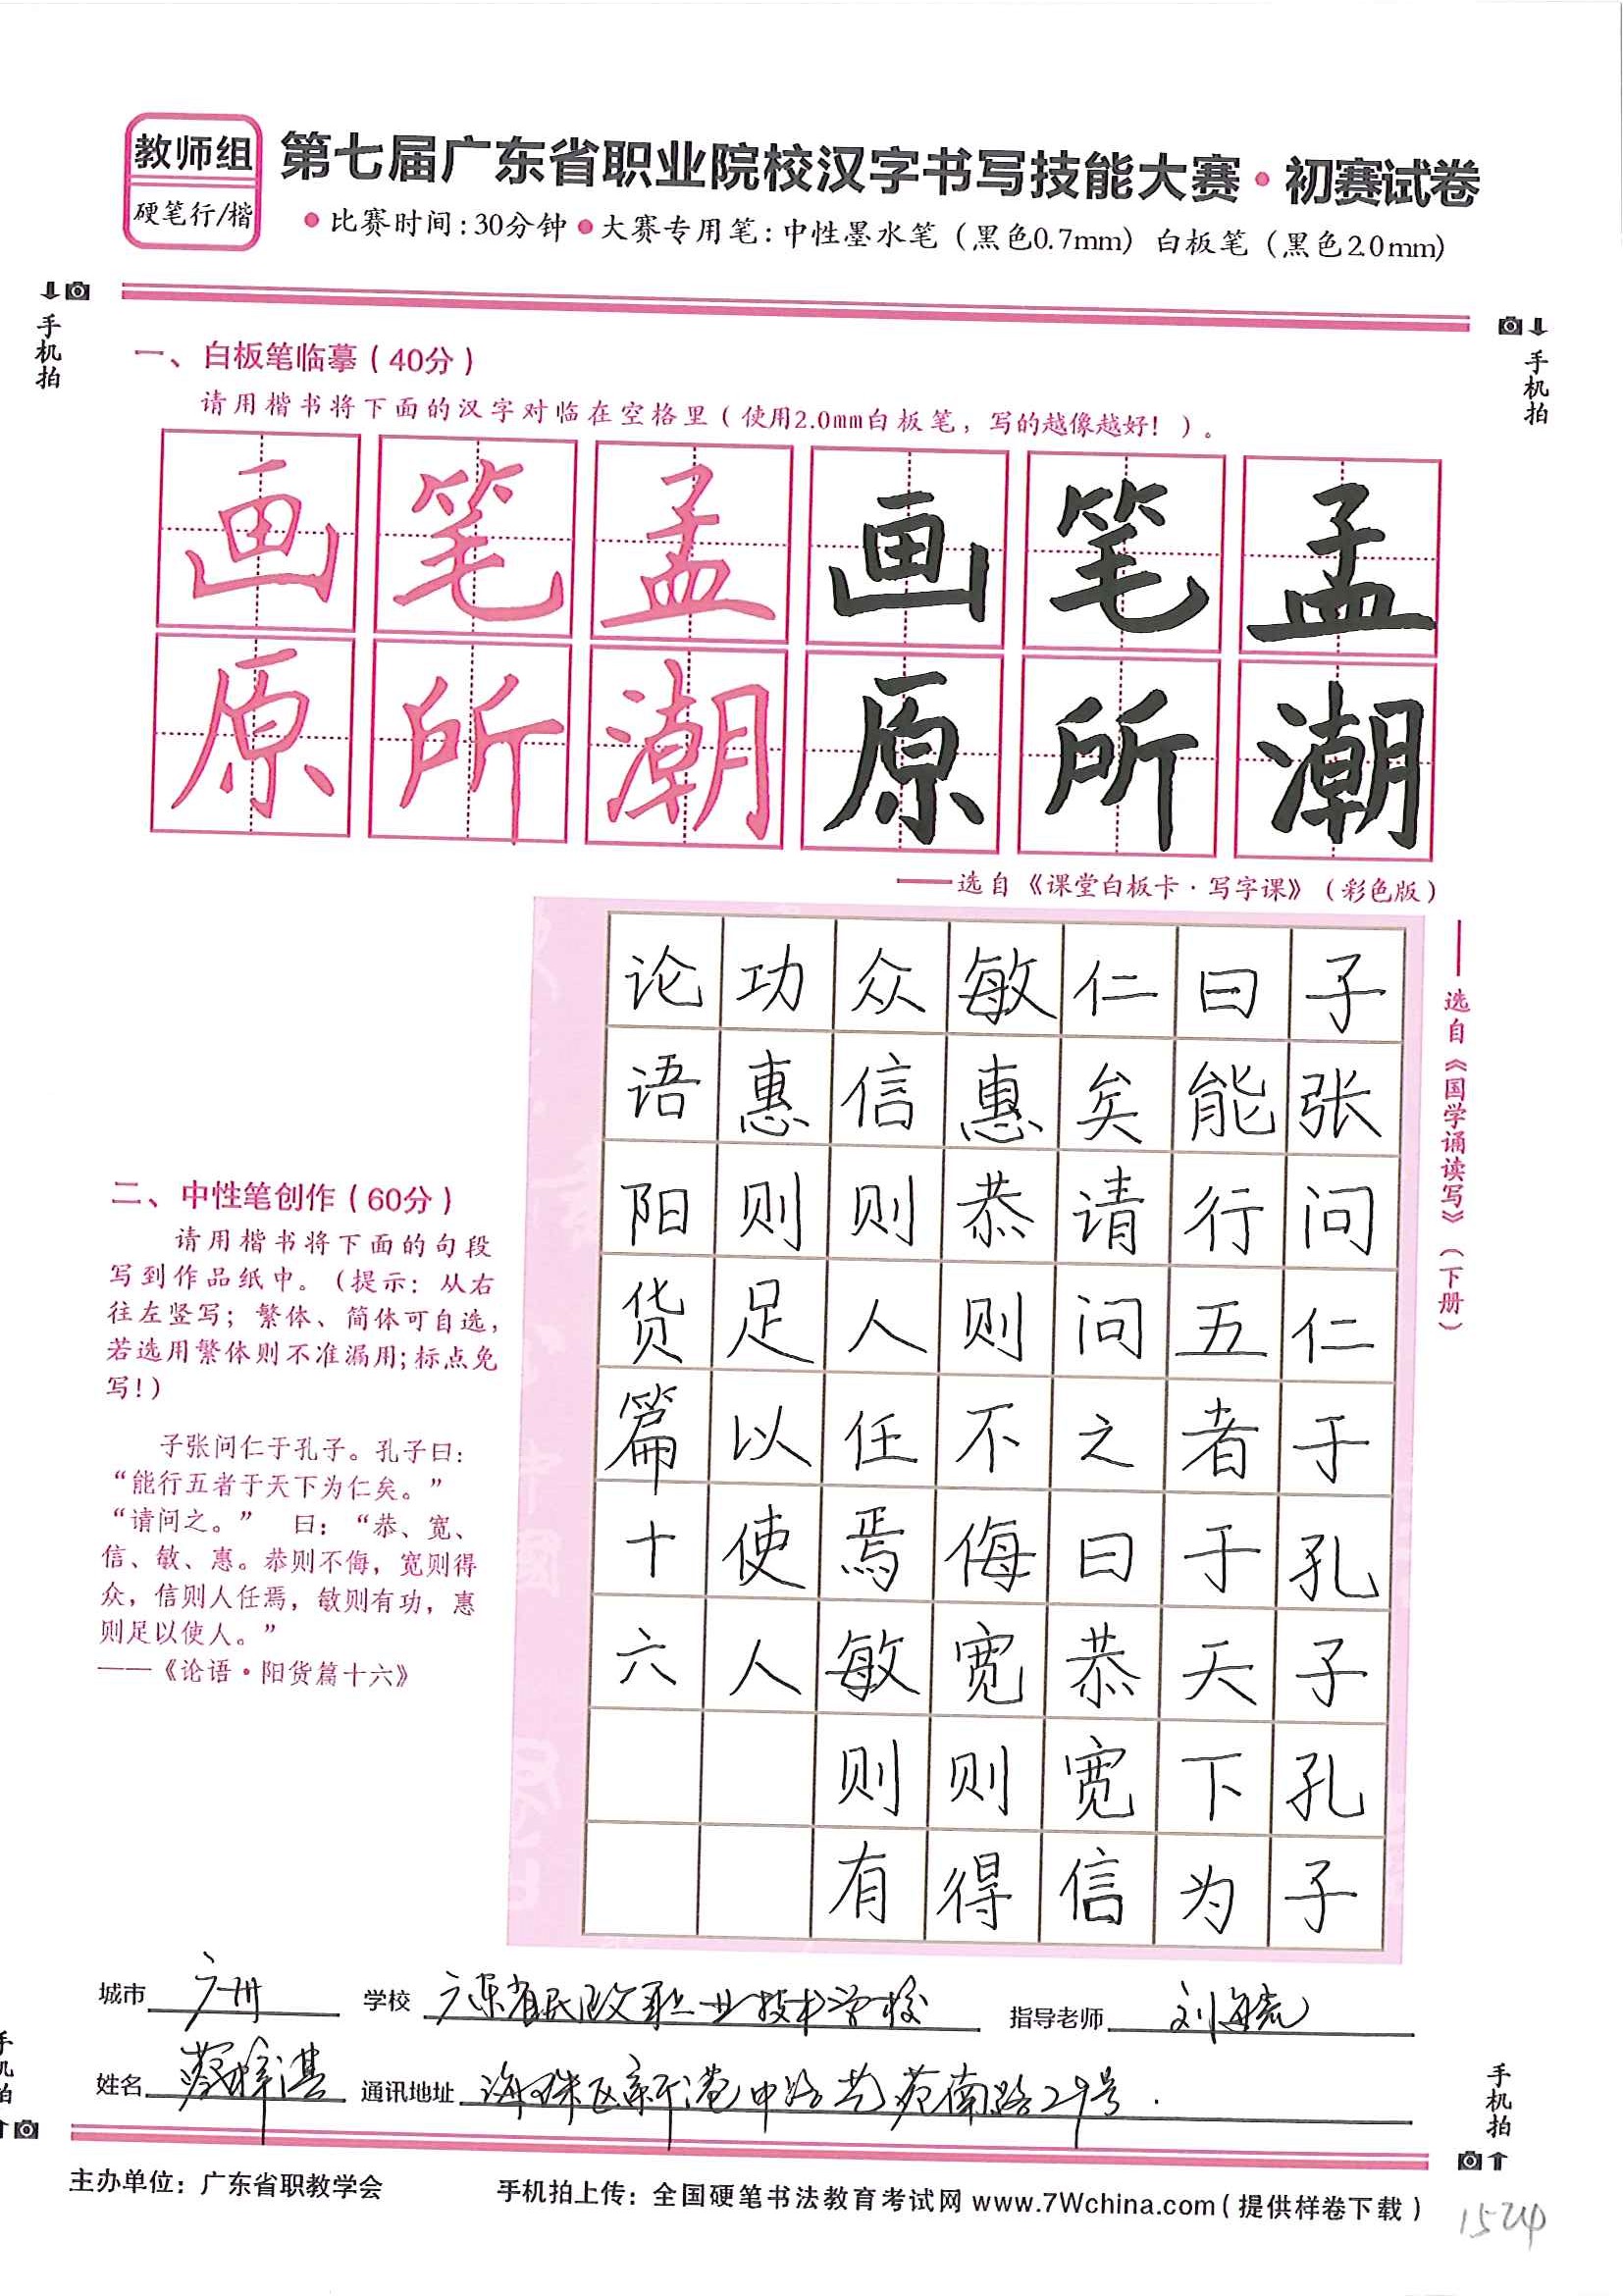 教师组
硬笔行/楷
第七届广东省职业院校汉字书写技能大赛·初赛试卷
●比赛时间:30分钟●大赛专用笔:中性墨水笔(黑色0.7mm)白板笔(黑色2.0mm)
手机拍
手机拍
一、白板笔临摹(40分)
请用楷书将下面的汉字对临在空格里(使用2.0mm白板笔,写的越像越好!)。
画笔孟画笔孟
原所潮原所潮
——选自《课堂白板卡·写字课》(彩色版)
——选自《国学诵读写》(下册)
子张问仁于孔子孔子
曰能行五者于天下为
仁矣请问之曰恭宽信
敏惠恭则不侮宽则得
众信则人任焉敏则有
功惠则足以使人
论语阳货篇十六
二、中性笔创作(60分)
请用楷书将下面的句段
写到作品纸中。(提示:从右
往左竖写;繁体、简体可自选,
若选用繁体则不准漏用;标点免
写!)
子张问仁于孔子。孔子曰:
“能行五者于天下为仁矣。”
“请问之。” 曰:“恭、宽、
信、敏、惠。恭则不侮,宽则得
众,信则人任焉,敏则有功,惠
则足以使人。”
——《论语·阳货篇十六》
城市 广州 学校 广东省民政职业技术学校 指导老师 刘海
姓名 蔡梓湛 通讯地址 海珠区新港中路艺苑南路29号.
手机拍
手机拍
主办单位:广东省职教学会 手机拍上传:全国硬笔书法教育考试网 www.7Wchina.com(提供样卷下载)